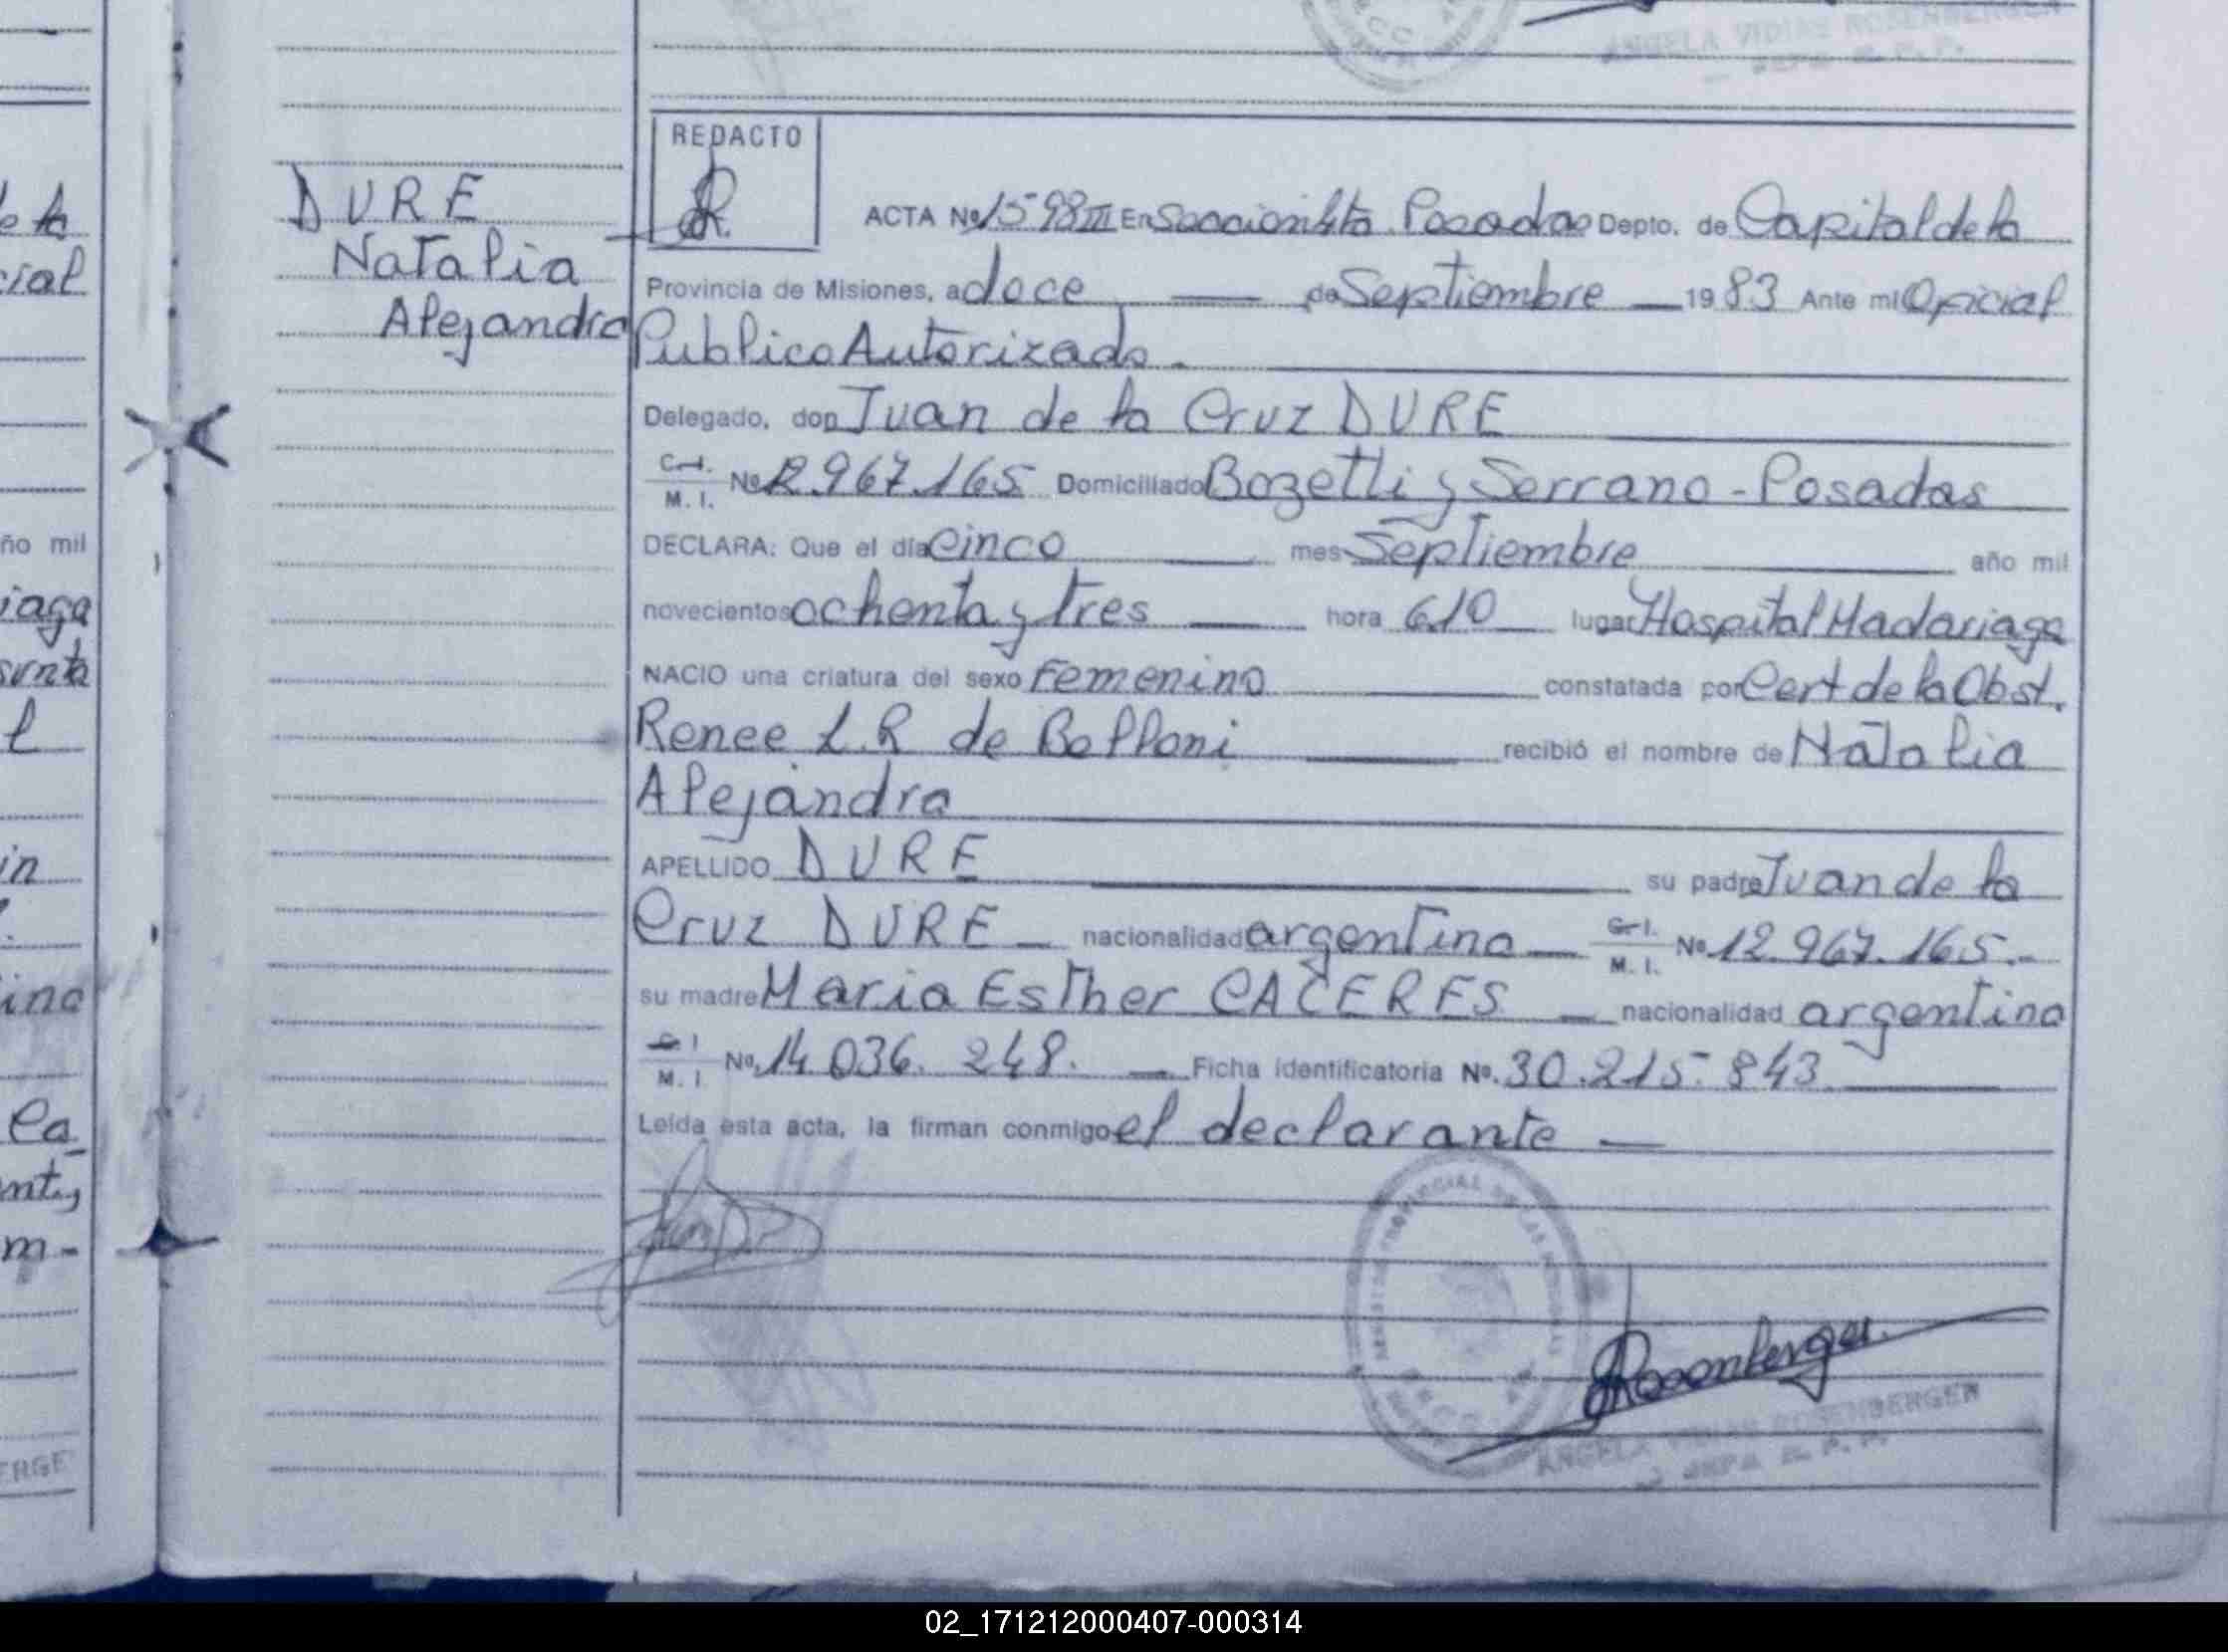 ANGELA VIDIAS ROSENBERGER
REDACTO
DURE
Natalia
Alejandra
ACTA Nº 1598 III En Seccion 4ta Posadas Depto. de Capital de la
Provincia de Misiones, a doce — de Septiembre — 1983 Ante mi Oficial
Publico Autorizado -
Delegado, don Juan de la Cruz DURE
C.I. / M. I. Nº 12.967.165 Domiciliado Bozetti y Serrano - Posadas
DECLARA: Que el día cinco mes Septiembre año mil
novecientos ochenta y tres — hora 6.10 lugar Hospital Madariaga
NACIO una criatura del sexo Femenino constatada por Cert de la Obst.
Renee L.R de Belloni recibió el nombre de Natalia
Alejandra
APELLIDO DURE su padre Juan de la
Cruz DURE — nacionalidad argentina — C.I. / M. I. Nº 12.967.165.-
su madre Maria Esther CACERES — nacionalidad argentina
C.I / M. I Nº 14.036.248. — Ficha identificatoria Nº. 30.215.843
Leída esta acta, la firman conmigo el declarante —
Rosenberger
ANGELA VIDIAS ROSENBERGER
02_171212000407-000314